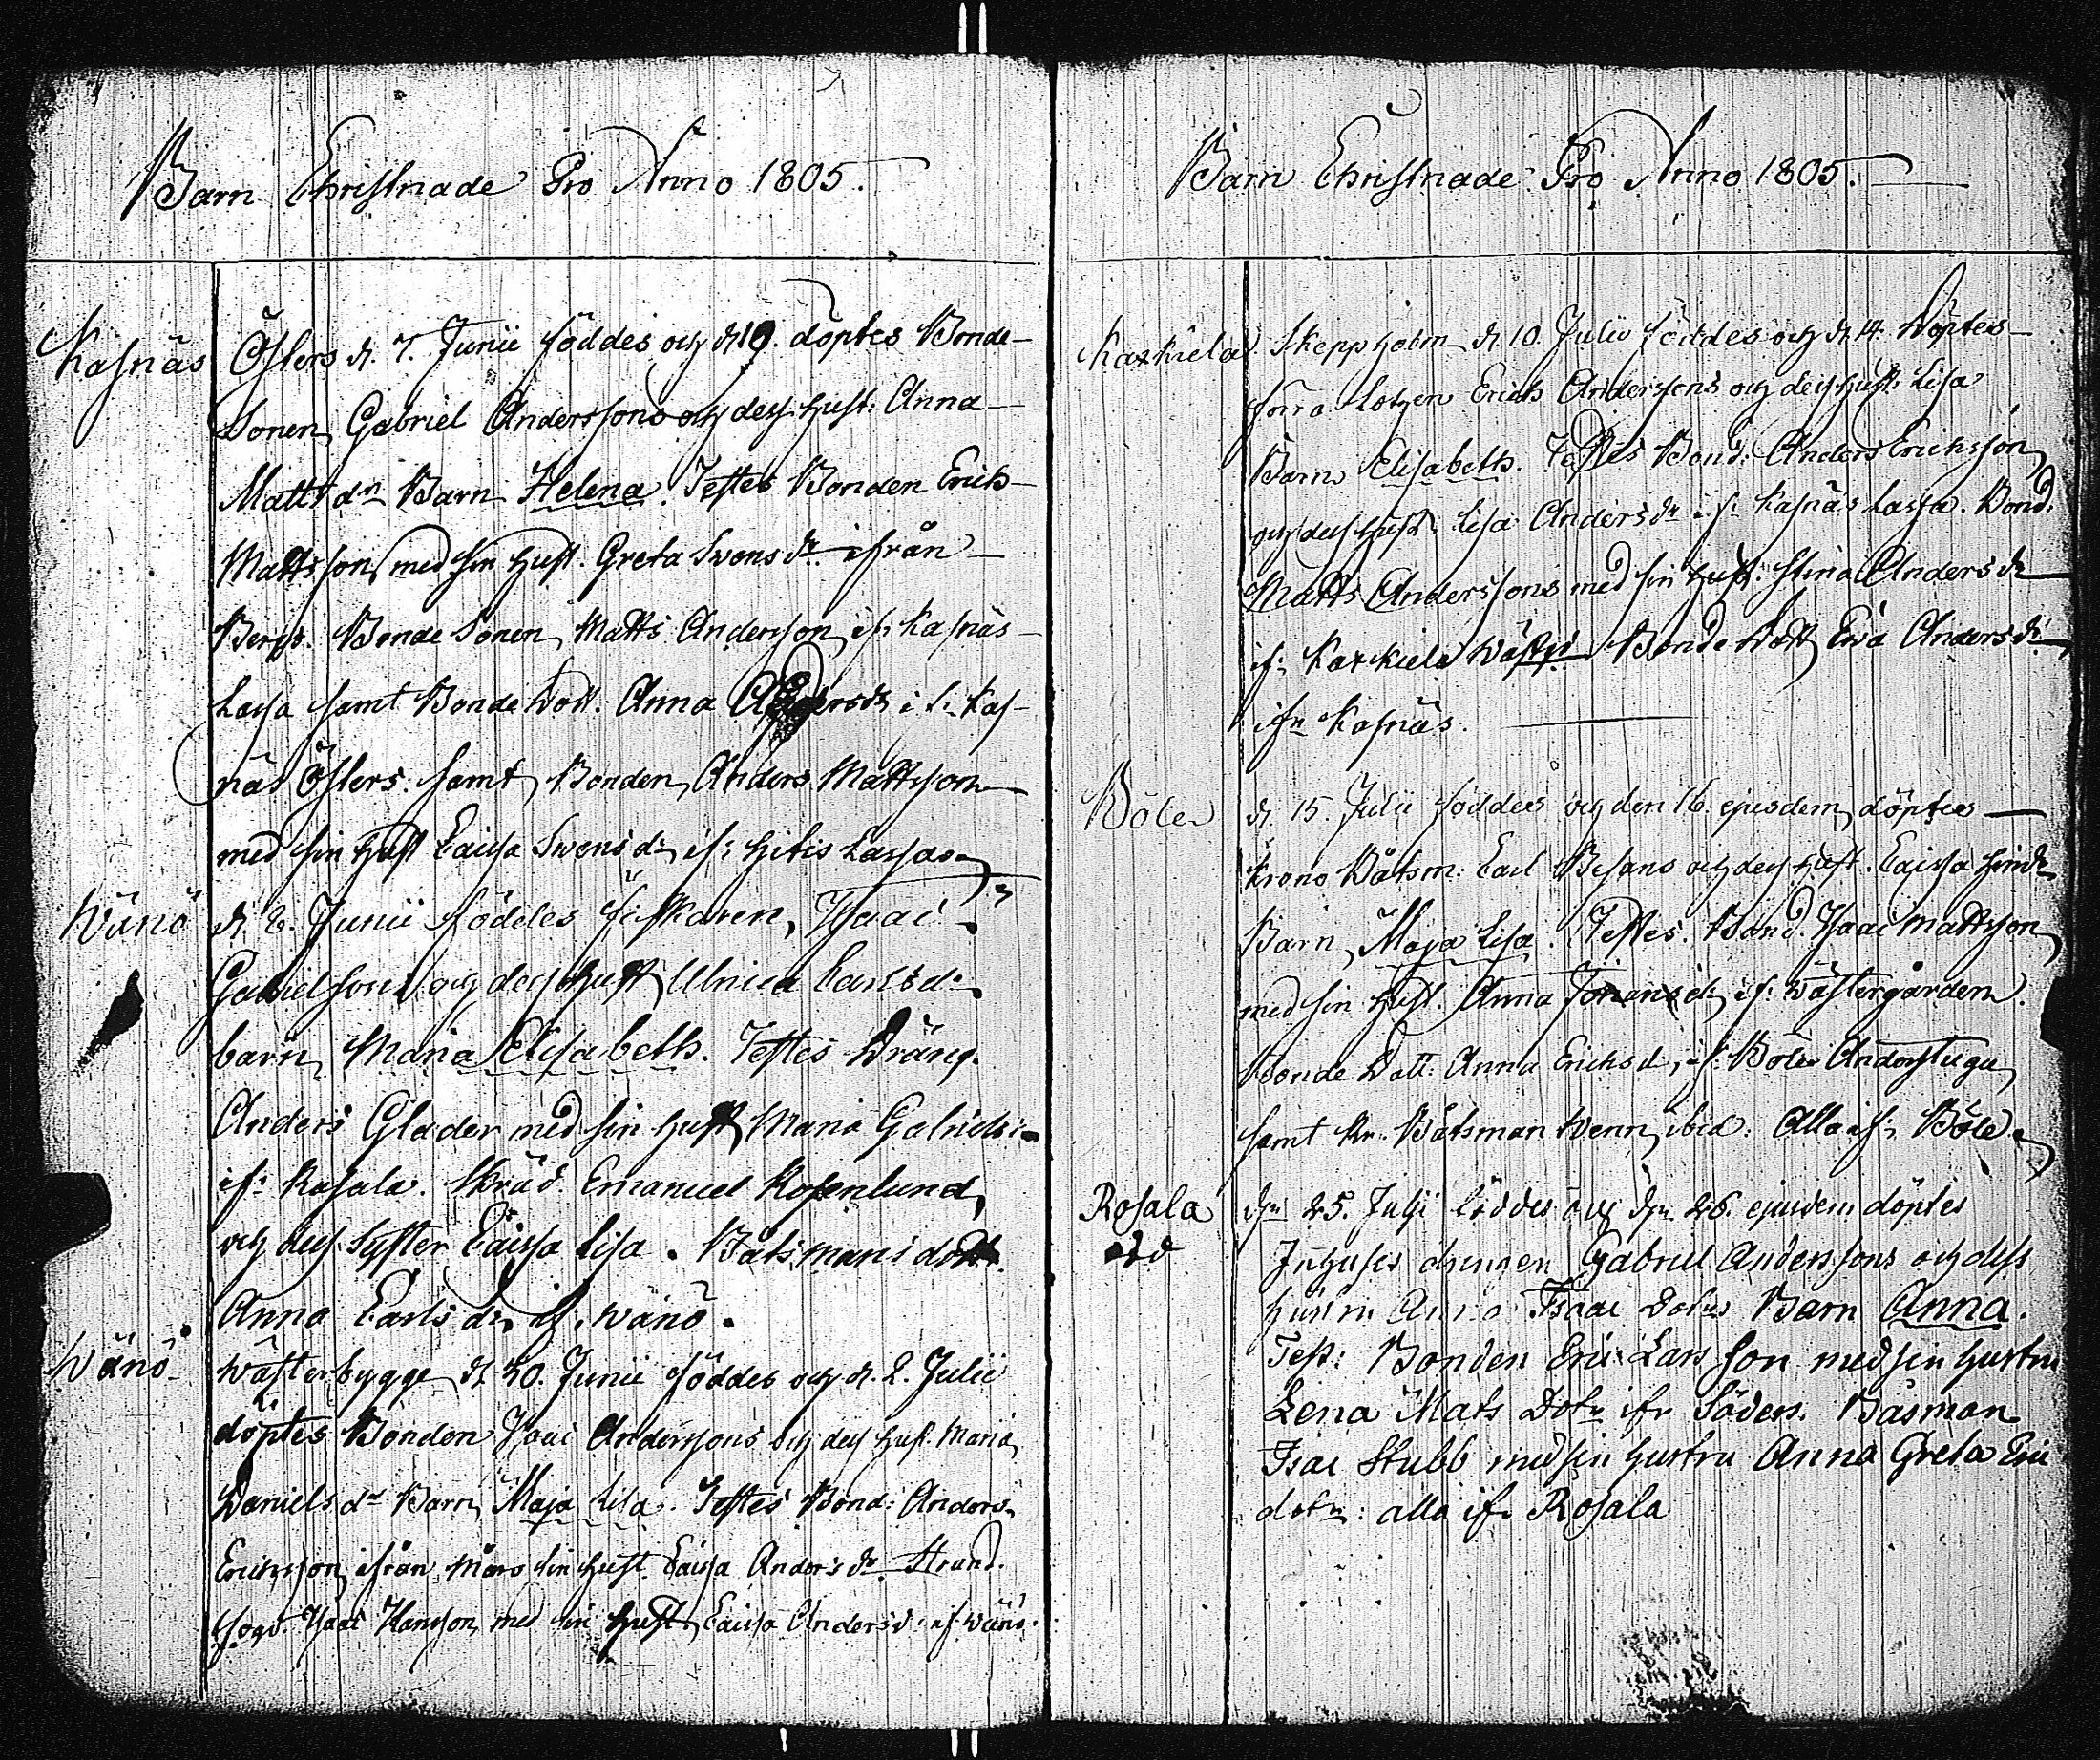 Barn Christnade Pro Anno 1805.
Kasnäs Östers d. 7. Junii föddes och d. 10. döptes Bonde-
Sonen Gabriel Anderssons och dess hust: Anna
Matts dn Barn Helena. Testes Bonden Erich
Mattsson med sin hust. Greta Svens dr. ifrån
Bergs. Bonde Sonen Matts Andersson if: Kasnäs
Lassa samt Bonde Dott. Anna Anders dr if: Kas-
näs Östers. samt Bonden Anders Mattsson
med sin hust Caisa Svens dr if: Hitis Lassas.
Wänö d. 8. Junii föddes fiskaren, Isaac
Gabrielsons och dess hust Ulrica Carls dr
barn Maria Elisabeth. Testes Dräng.
Anders Glader med sin hust Maria Gabriels
if: Rosala. Skräd. Emanuel Rosenlund,
och dess Syster Caisa Lisa. Båtsmans dott.
Anna Carls dr if. Wänö.
Wänö Wästerbygge d. 30. Junii föddes och d. 2. Julii
döptes Bonden Isaac Anderssons och dess hust. Maria
Daniels dr Barn Maja Lisa. Testes Bond: Anders
Ericksson ifrån sin hust. Caisa Anders dr. Strand.
fogd. Isaac Hansson med sin hust Caisa Anders d: if. Wänö.
Barn Christnade Pro Anno 1805.
Kaxkiela Skeppholm d. 10. Julii föddes och d. 14. Döptes
förra Lotzen Erich Anderssons och dess hust: Lisa
Barn Elisabeth. Testes Bond: Anders Ericksson
och dess hust. Lisa Anders dr if: Kasnäs Lassa. Bond:
Matts Anderssons med sin hust: Stina Anders dr
if: Kaxkiela Bonde Dott Eva Anders dr.
ifn Kasnäs.
Böle d. 15. Julii föddes och den 16. ejusdem döptes
Krono Båtsm: Carl och dess hust. Caisa
Barn, Maja Lisa. Testes. Bond. Isaac Mattsson
med sin hust. Anna Johans dr if: Wästergården.
Bonde Dott: Anna Erichs d, if: Böle Anderstugu
samt Kr. Båtsman Wenn ibid: Alla if: Böle.
Rosala dn 25. Julii föddes och dn 26. ejusdem döptes
Inhyses drengen Gabriel Anderssons och dess
hustru Anna Isaac Dotrs Barn Anna.
Test: Bonden Eric Lars son med sin hustru
Lena Mats Dotr ifr Söders. Båsman
Isac Stubb med sin hustru Anna Greta Eric
dotr: alla ifr Rosala